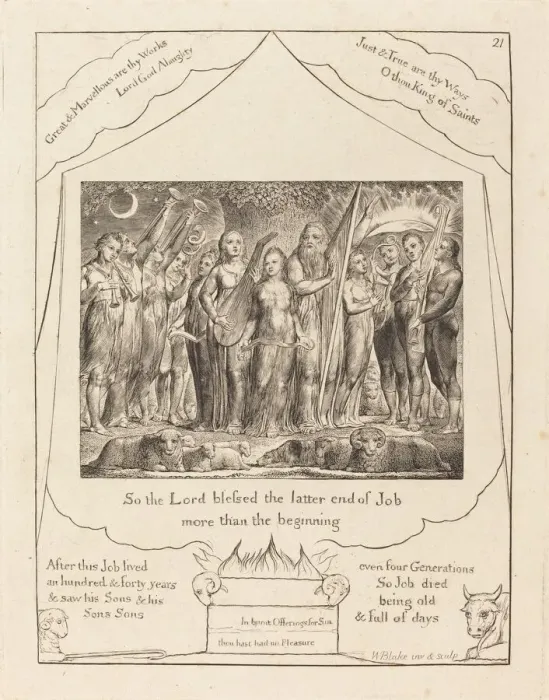 21
Great & Marvellous are thy Works
Lord God Almighty
Just & True are thy Ways
O thou King of Saints
So the Lord blessed the latter end of Job
more than the beginning
After this Job lived
an hundred & forty years
& saw his Sons & his
Sons Sons
even four Generations
So Job died
being old
& full of days
In burnt Offerings for Sin
thou hast had no Pleasure
WBlake inv & sculp